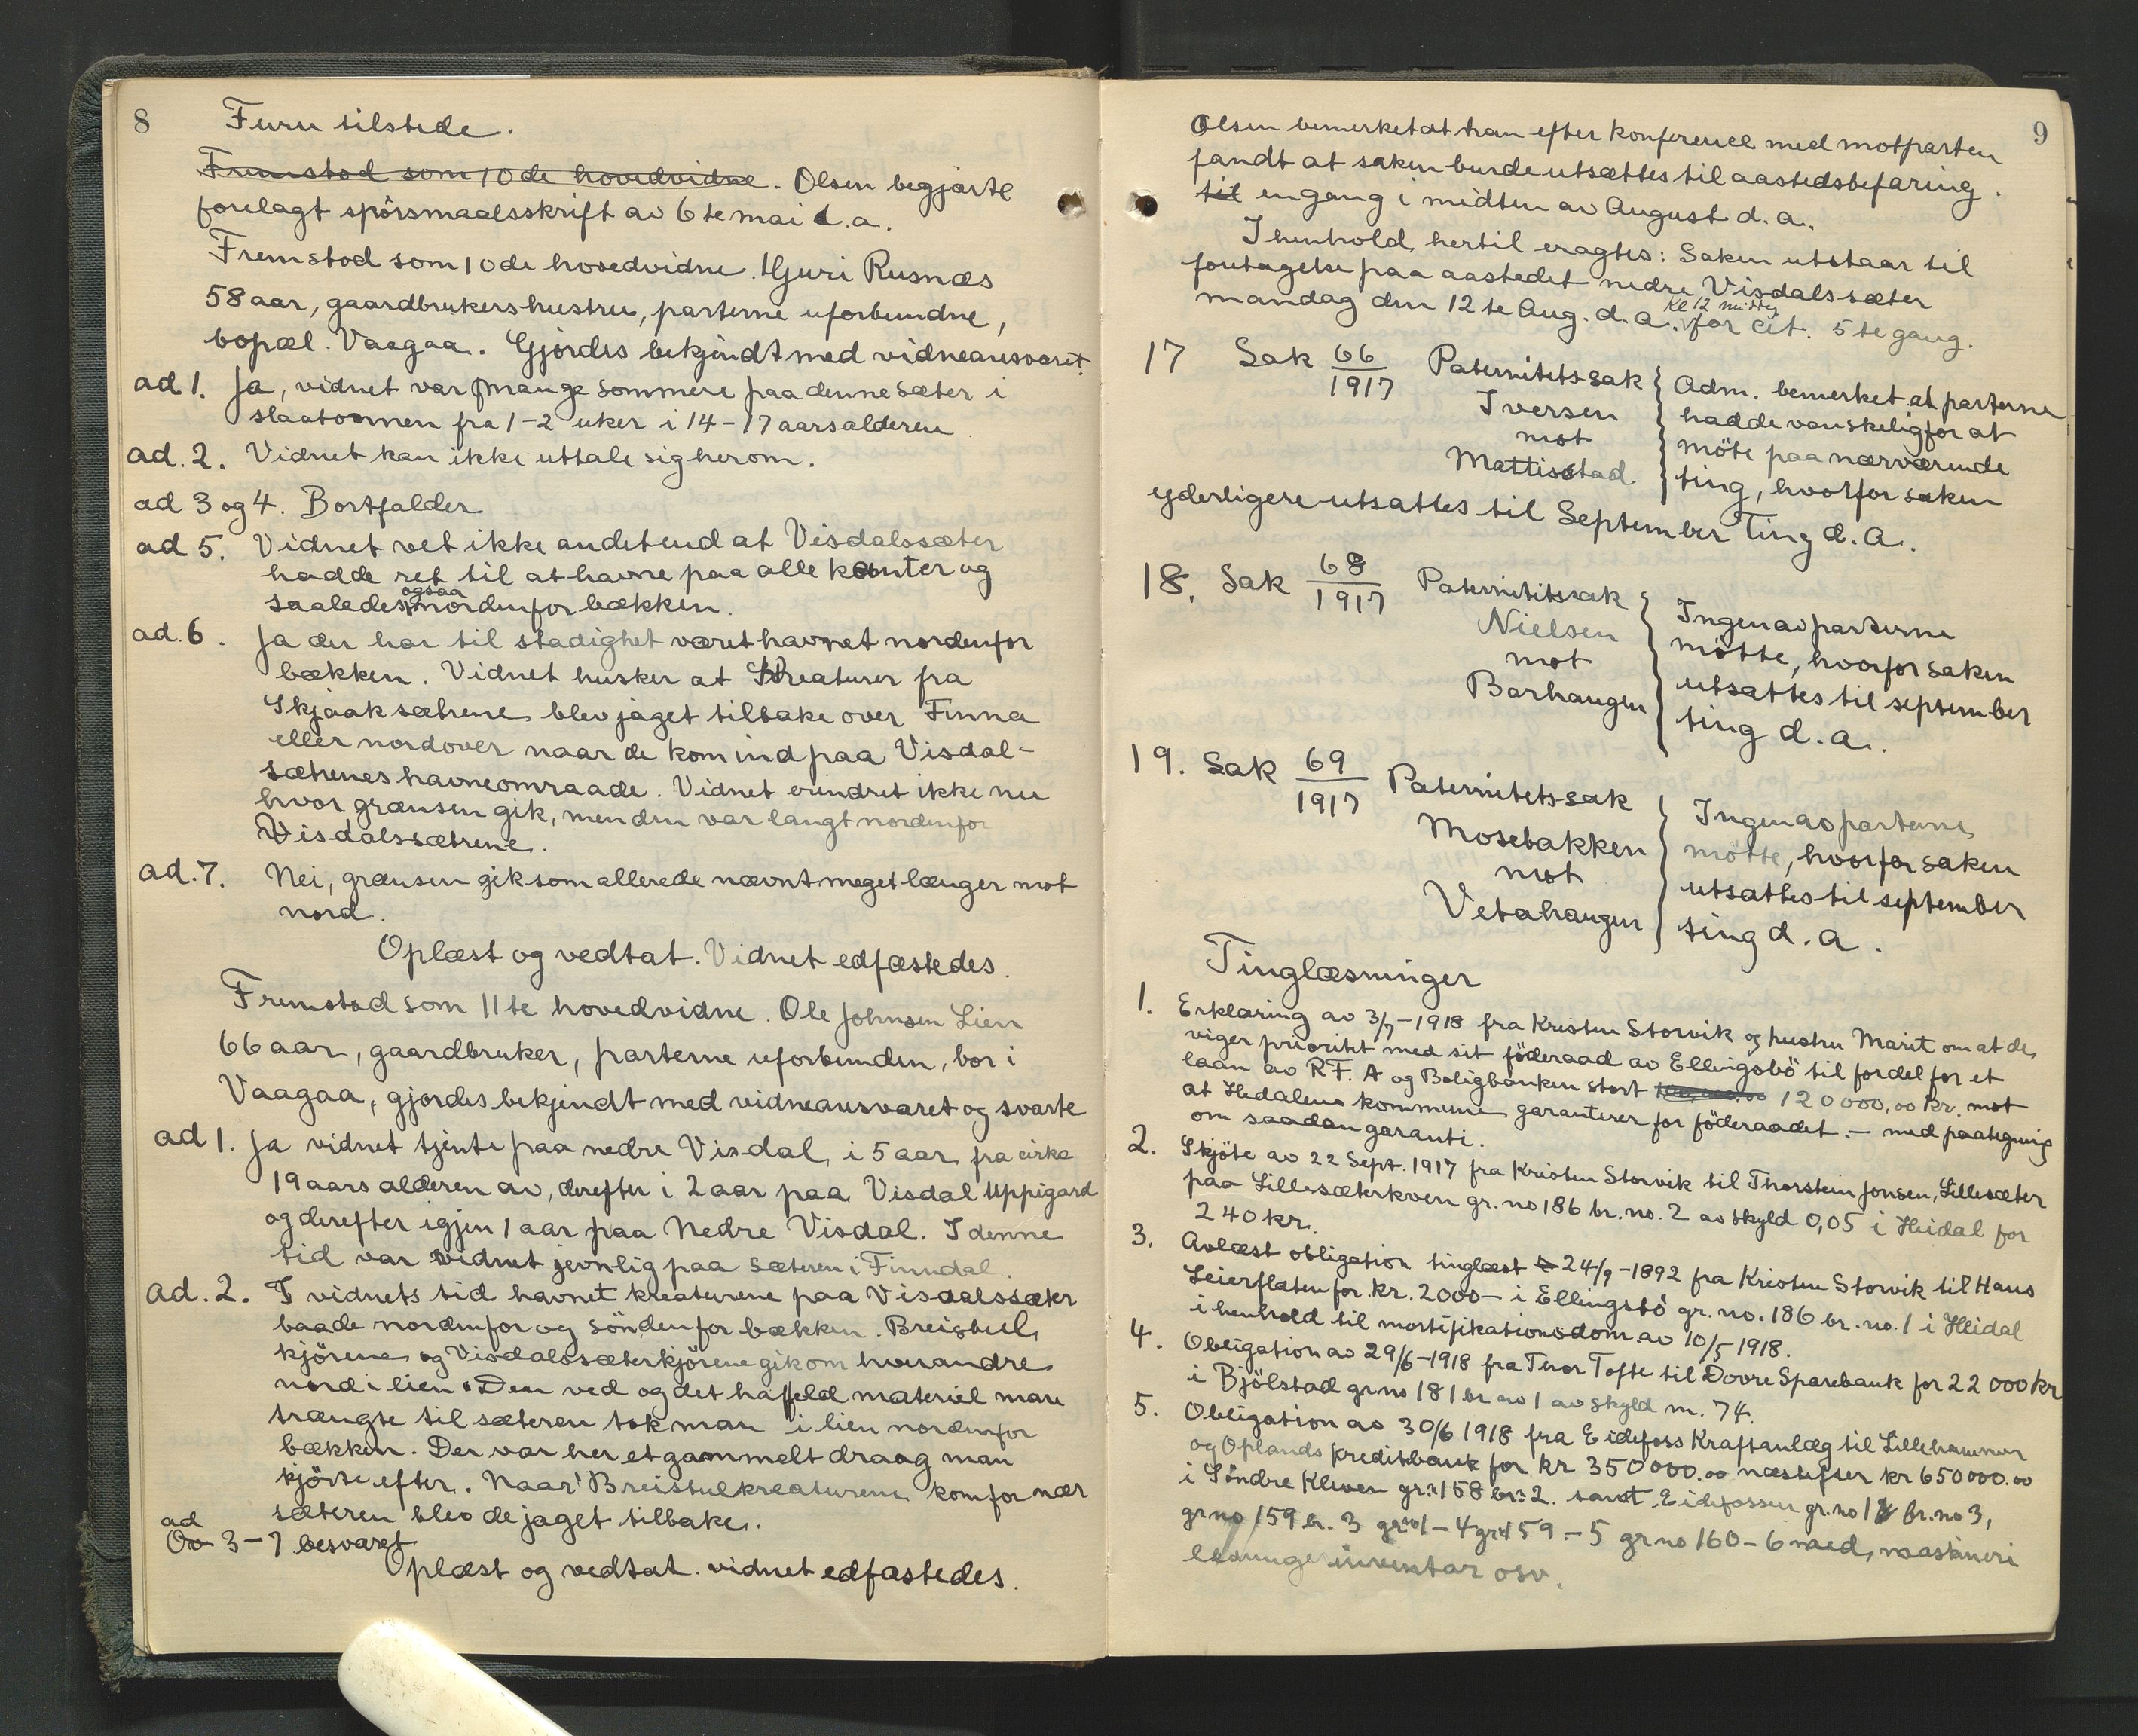 8
Furu tilstede.
Fremstod som 10de hovedvidne. Olsen begjærte
forelagt spörsmaalsskrift av 6te mai d.a.
Fremstod som 10de hovedvidne. Guri Rusnæs
58 aar, gaardbrukershustru, parterne uforbundne,
bopæl Vaagaa. Gjordes bekjendt med vidneansvaret.
ad 1. Ja, vidnet var mange sommere paa denne sæter i
slaatonnen fra 1-2 uker i 14-17 aarsalderen
ad. 2. Vidnet kan ikke uttale sig herom.
ad 3 og 4. Bortfalder
ad 5. Vidnet vet ikke andet end at Visdalssæter
hadde ret til at havne paa alle kanter og
saaledes ogsaa nordenfor bækken.
ad. 6. Ja der har til stadighet været havnet nordenfor
bækken. Vidnet husker at Kreaturer fra
Skjaaksætrene blev jaget tilbake over Finna
eller nordover naar de kom ind paa Visdal-
sætrenes havneomraade. Vidnet erindret ikke nu
hvor grænsen gik, men den var langt nordenfor
Visdalssætrene.
ad. 7. Nei, grænsen gik som allerede nævnt meget længer mot
nord.
Oplæst og vedtat. Vidnet edfæstedes.
Fremstod som 11te hovedvidne. Ole Johnsen Lien
66 aar, gaardbruker, parterne uforbunden, bor i
Vaagaa, gjordes bekjendt med vidneansvaret og svarte
ad 1. Ja vidnet tjente paa nedre Visdal i 5 aar fra cirka
19 aars alderen av, derefter i 2 aar paa Visdal Uppigard
og derefter igjen 1 aar paa Nedre Visdal. I denne
tid var vidnet jevnlig paa sæteren i Finndal.
ad. 2. I vidnets tid havnet kreaturene paa Visdalssæter
baade nordenfor og söndenfor bækken. Breistul
kjörene og Visdalssæterkjörene gik om hverandre
nord i lien. Den ved og det haffeld materiel man
trængte til sæteren tok man i lien nordenfor
bækken. Der var her et gammelt draag man
kjörte efter. Naar Breistulkreaturene kom for nær
sæteren blev de jaget tilbake.
ad 3-7 besvaret
Oplæst og vedtat. vidnet edfæstedes.
9
Olsen bemerket at han efter konference med motparten
fandt at saken burde utsættes til aastedsbefaring.
til engang i midten av August d.a.
I henhold hertil eragtes: Saken utstaar til
foretagelse paa aastedet nedre Visdalssæter
mandag den 12te Aug. d.a. Kl 12 middag for cit. 5te gang.
17 Sak 66/1917 Paternitetssak Adm. bemerket at parterne
Iversen hadde vanskelig for at
mot möte paa nærværende
Mattisstad ting, hvorfor saken
yderligere utsattes til September Ting d.a.
18. Sak 68/1917 Paternitetssak Ingen av parterne
Nielsen mötte, hvorfor saken
mot utsattes til september
Barhaugen ting d.a.
19. Sak 69/1917 Paternitetssak Ingen av parterne
Mosebakken mötte, hvorfor saken
mot utsattes til september
Vetahaugen ting d.a.
Tinglæsninger
1. Erklæring av 3/7-1918 fra Kristen Storvik og hustru Marit om at de
viger prioritet med sit föderaad av Ellingsbö til fordel for et
laan av R.F. A og Boligbanken stort 120000,00 kr. mot
at Hedalens kommune garanterer for föderaadet. - med paategning
om saadan garanti.
2. Skjöte av 22 Sept. 1917 fra Kristen Storvik til Thorstein Jonsen, Lillesæter
paa Lillesæterkvern gr. no 186 br. no. 2 av skyld 0,05 i Heidal for
240 kr.
3. Avlæst obligation tinglæst 24/9-1892 fra Kristen Storvik til Hans
Leierflaten for kr. 2000- i Ellingsbö gr. no. 186 br. no. 1 i Heidal
i henhold til mortifikationsdom av 10/5 1918.
4. Obligation av 29/6-1918 fra Thor Tofte til Dovre Sparebank for 22000 kr
i Bjölstad gr no 181 br no 1 av skyld m. 74.
5. Obligation av 30/6 1918 fra Eidefoss Kraftanlæg til Lillehammer
og Oplands Kreditbank for kr 350000.00 næstefter kr 650000.00
i Söndre Kleven gr. n 158 br n 2. samt Eidefossen gr. no br. no 3,
gr no 159 br. 3 - 4 gr n 159 - 5 gr no 160 - 6 med maskineri
ledninger inventar osv.